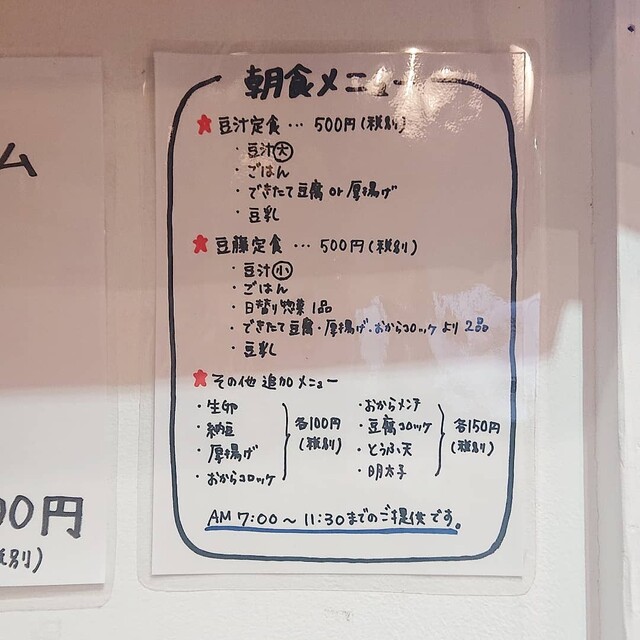 朝食メニュー
豆汁定食…500円(税別)
・豆汁大
・ごはん
・できたて豆腐or厚揚げ
・豆乳
豆藤定食…500円(税別)
・豆汁小
・ごはん
・日替り惣菜1品
・できたて豆腐・厚揚げ・おからコロッケより2品
・豆乳
その他追加メニュー
・生卵
・納豆
・厚揚げ
・おからコロッケ
各100円
(税別)
・おからメンチ
・豆腐コロッケ
・とうふ天
・明太子
各150円
(税別)
AM7:00~11:30までのご提供です。
ム
00円
税別)